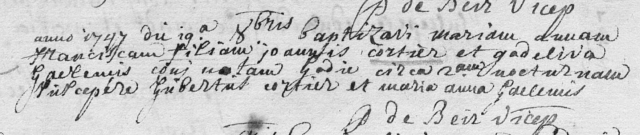 P de Beir Vicep
anno 1747 die 19a 8bris baptizavi mariam annam
franciscam filiam joannis cortier et godeliva
Gaelenis conj natam hodie circa 2am nocturnam
susceperе Gubertus cortier et maria anna Gaelenis
P de Beir Vicep